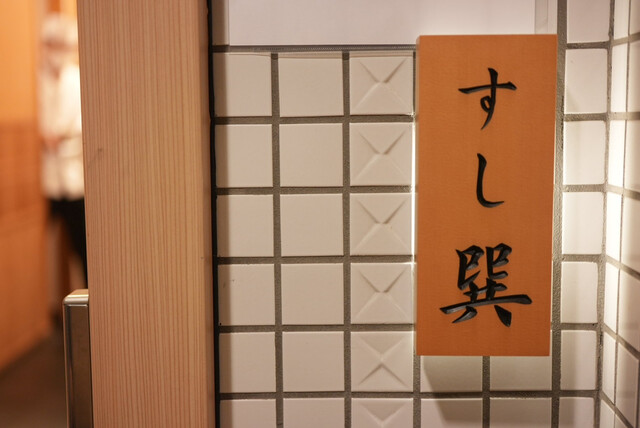 すし巽